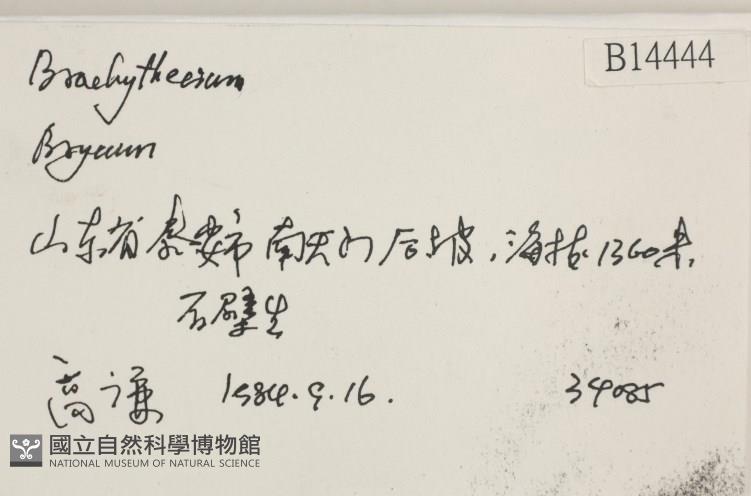 B14444
Brachythecium
Bryum
山东省泰安市南天门后坡,海拔1360米,
石壁生
高谦 1984.9.16. 34085
國立自然科學博物館
NATIONAL MUSEUM OF NATURAL SCIENCE